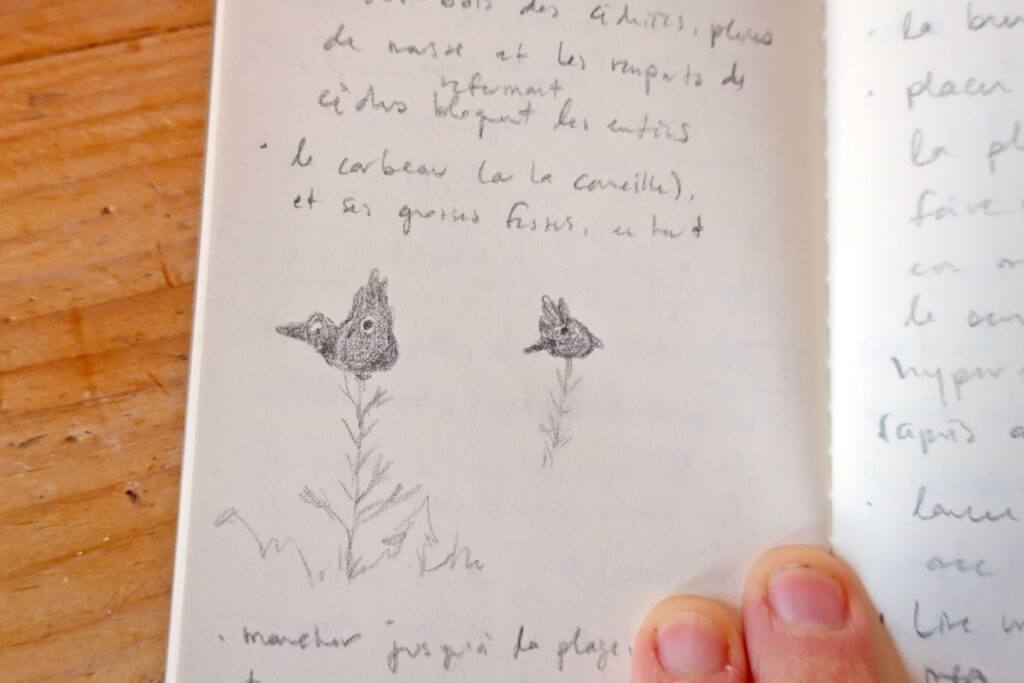 bois des cèdres, pleins
de mousse et les remparts de
refermant
cèdres bloquant les entiers
· le corbeau (ou la corneille),
et ses grosses fesses, en haut
· marcher jusqu'à la plage,
· la
· placer
la pl
faire
en
le
hyper
(après a
· lancer
avec
· Lire